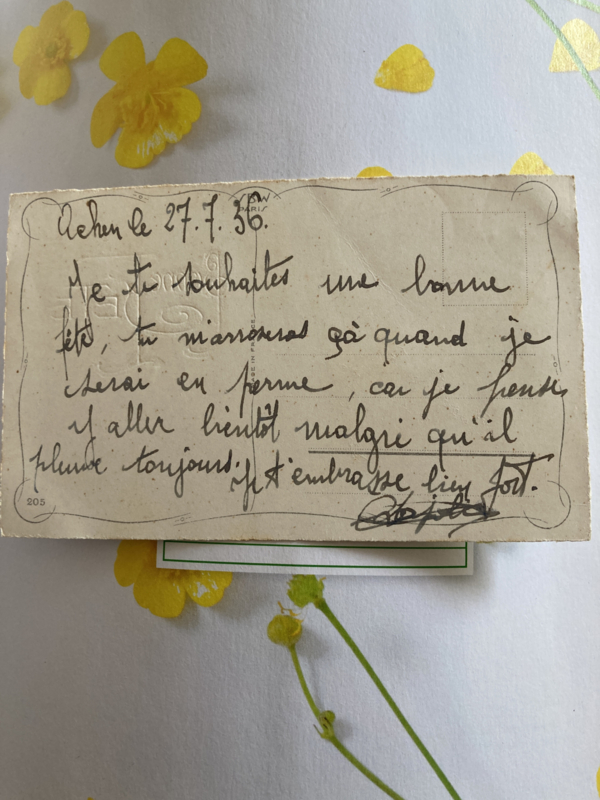 SBW
PARIS
Achen le 27.7.36.
Je te souhaites une bonne
fête, tu m'arroseras çà quand je
serai en perme, car je pense
y aller bientôt malgré qu'il
pleuve toujours. Je t'embrasse bien fort.
205